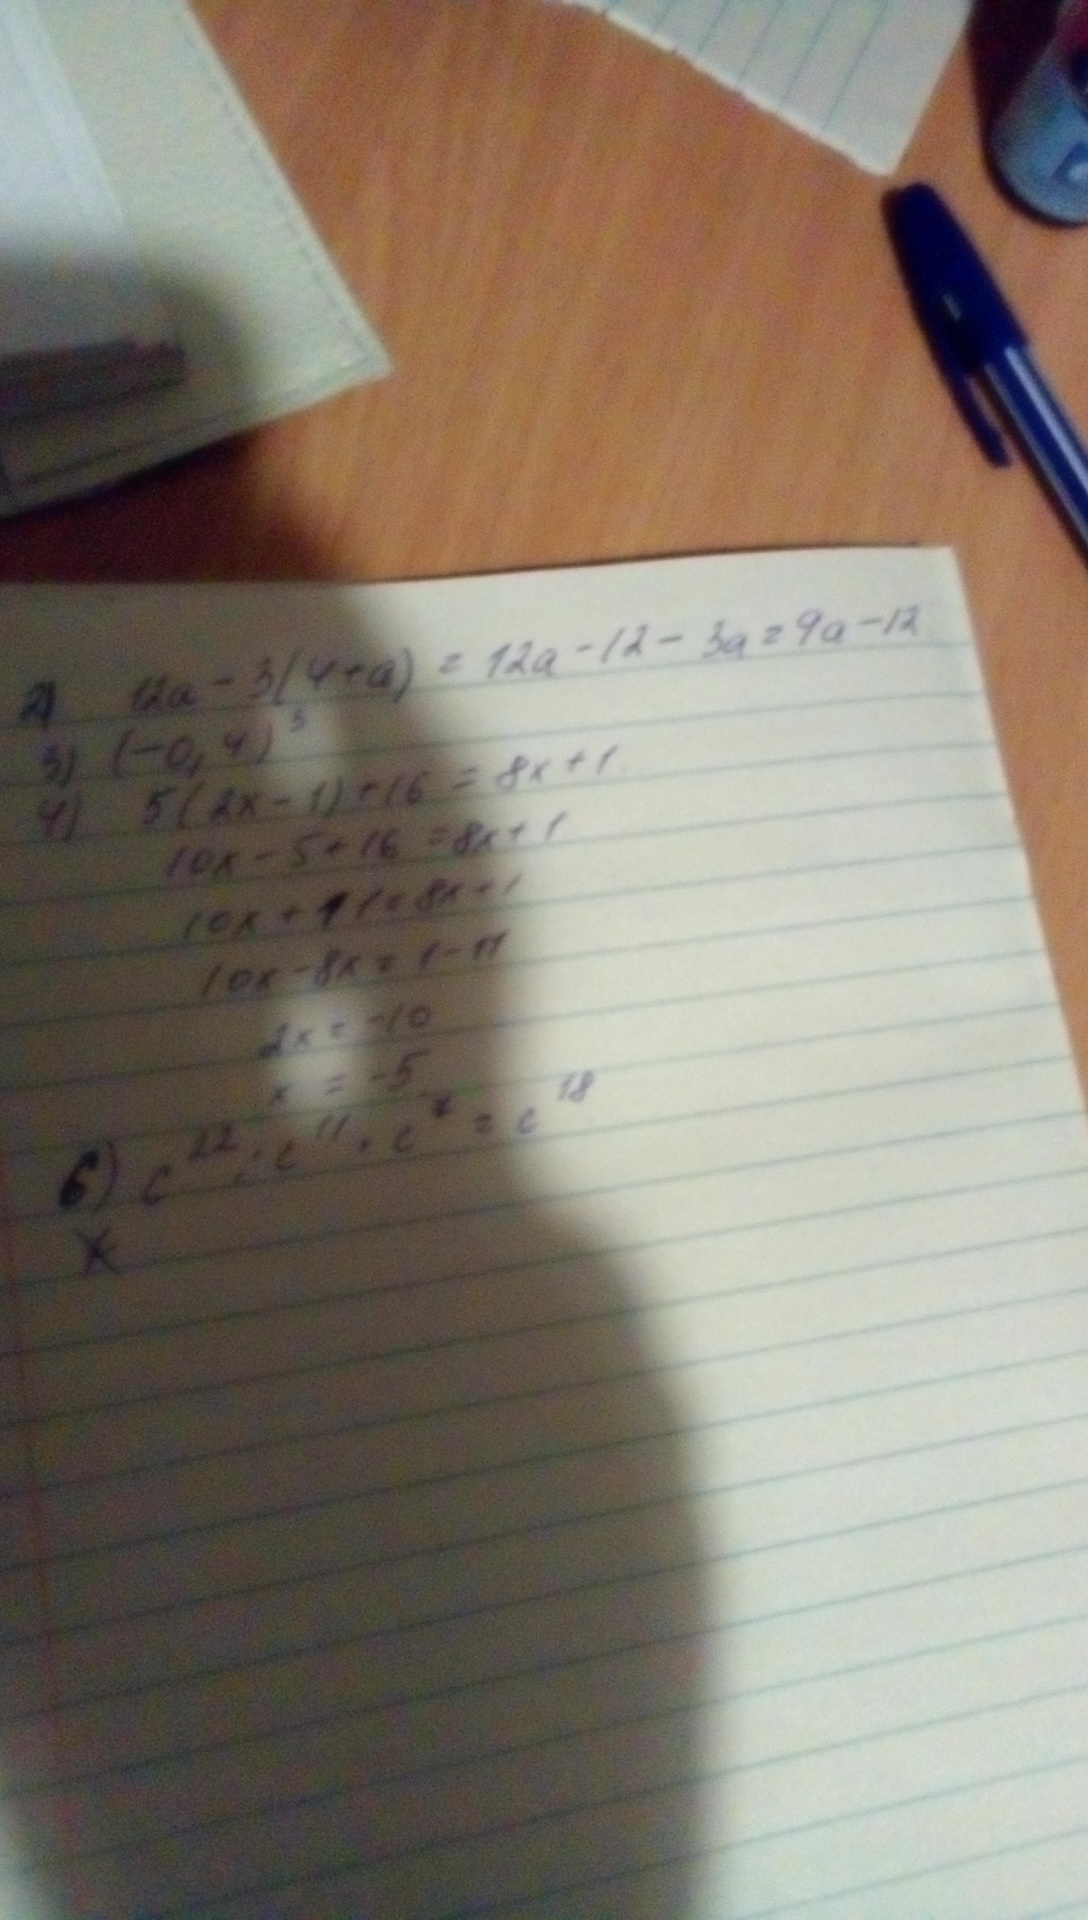 2) 12a - 3(4+a) = 12a - 12 - 3a = 9a - 12
3) (-0,4)³
4) 5(2x - 1) + 16 = 8x + 1
10x - 5 + 16 = 8x + 1
10x + 11 = 8x + 1
10x - 8x = 1 - 11
2x = -10
x = -5
6) c²² : c¹¹ · c⁷ = c¹⁸
x